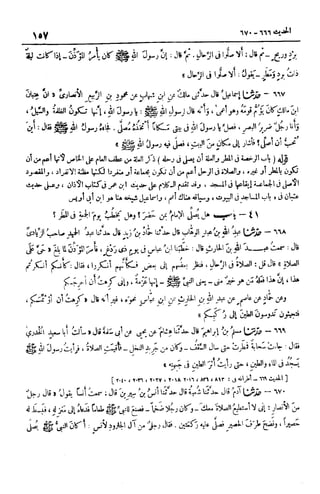 الحديث ٦٦٦ - ٦٧٠ ١٥٧
برد وريح - ثم قال : ألا صلوا في الرحال . ثم قال : إن رسول الله ﷺ كان يأمر المؤذن - إذا كانت ليلة
ذات برد ومطر - يقول : ألا صلوا في الرحال »
٦٦٧ - حدثنا إسماعيل قال حدثني مالك عن ابن شهاب عن محمود بن الربيع الأنصاري « أن عتبان
ابن مالك كان يؤم قومه وهو أعمى ، وأنه قال لرسول الله ﷺ : يا رسول الله ، إنها تكون الظلمة والسيل ،
وأنا رجل ضرير البصر ، فصل يا رسول الله في بيتي مكانا أتخذه مصلى . فجاءه رسول الله ﷺ فقال : أين
تحب أن أصلي ؟ فأشار إلى مكان من البيت ، فصلى فيه رسول الله ﷺ »
قوله ( باب الرخصة في المطر والعلة أن يصلي في رحله ) ذكر العلة من عطف العام على الخاص لأنها أعم من أن
تكون بالمطر أو غيره ، والصلاة في الرحل أعم من أن تكون بجماعة أو منفردا لكنها مظنة الانفراد ، والمقصود
الأصلي في الجماعة إيقاعها في المسجد ، وقد تقدم الكلام على حديث ابن عمر في كتاب الأذان ، وعلى حديث
عتبان في باب المساجد في البيوت ، وسياقه هناك أتم ، وإسماعيل شيخه هنا هو ابن أبي أويس
٤١ - باب هل يصلي الإمام بمن حضر ؟ وهل يخطب يوم الجمعة في المطر ؟
٦٦٨ - حدثنا عبد الله بن عبد الوهاب قال حدثنا حماد بن زيد قال حدثنا عبد الحميد صاحب الزيادي
قال : سمعت عبد الله بن الحارث قال « خطبنا ابن عباس في يوم ذي ردغ ، فأمر المؤذن لما بلغ « حي على
الصلاة » قال قل : الصلاة في الرحال ، فنظر بعضهم إلى بعض فكأنهم أنكروا ، فقال : كأنكم أنكرتم
هذا ، إن هذا فعله من هو خير مني - يعني النبي ﷺ - إنها عزمة ، وإني كرهت أن أحرجكم
وعن حماد عن عاصم عن عبد الله بن الحارث عن ابن عباس نحوه ، غير أنه قال « كرهت أن أؤثمكم ،
فتجيئون تدوسون الطين إلى ركبكم »
٦٦٩ - حدثنا مسلم بن إبراهيم قال حدثنا هشام عن يحيى عن أبي سلمة قال « سألت أبا سعيد الخدري
فقال : جاءت سحابة فمطرت حتى سال السقف - وكان من جريد النخل - فأقيمت الصلاة ، فرأيت رسول الله ﷺ
يسجد في الماء والطين ، حتى رأيت أثر الطين في جبهته »
[ الحديث ٦٦٩ - أطرافه في : ٨١٣ ، ٨٣٦ ، ٢٠١٦ ، ٢٠١٨ ، ٢٠٢٧ ، ٢٠٣٦ ، ٢٠٤٠ ]
٦٧٠ - حدثنا آدم قال حدثنا شعبة قال حدثنا أنس بن سيرين قال : سمعت أنسا يقول « قال رجل
من الأنصار : إني لا أستطيع الصلاة معك - وكان رجلا ضخما - فصنع للنبي ﷺ طعاما فدعاه إلى منزله ، فبسط له
حصيرا ، ونضح طرف الحصير فصلى عليه ركعتين . فقال رجل من آل الجارود لأنس : أكان النبي ﷺ يصلي